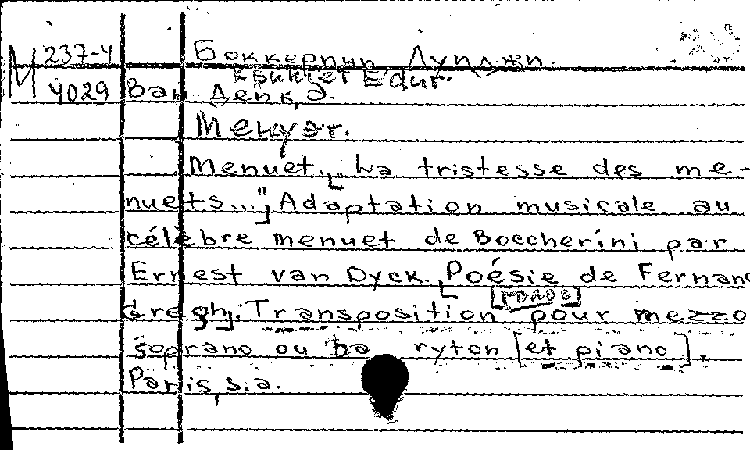 М 237-4 Боккерини Луиджи.
4029 Ван Дейк, Э.
Менуэт.
Menuet. "La tristesse des me-
nuets..." Adaptation musicale au
célèbre menuet de Boccherini par
Ernest van Dyck. Poésie de Fernand
Gregh. Transposition pour mezzo
soprano ou baryton [et piano].
Paris, s.a.